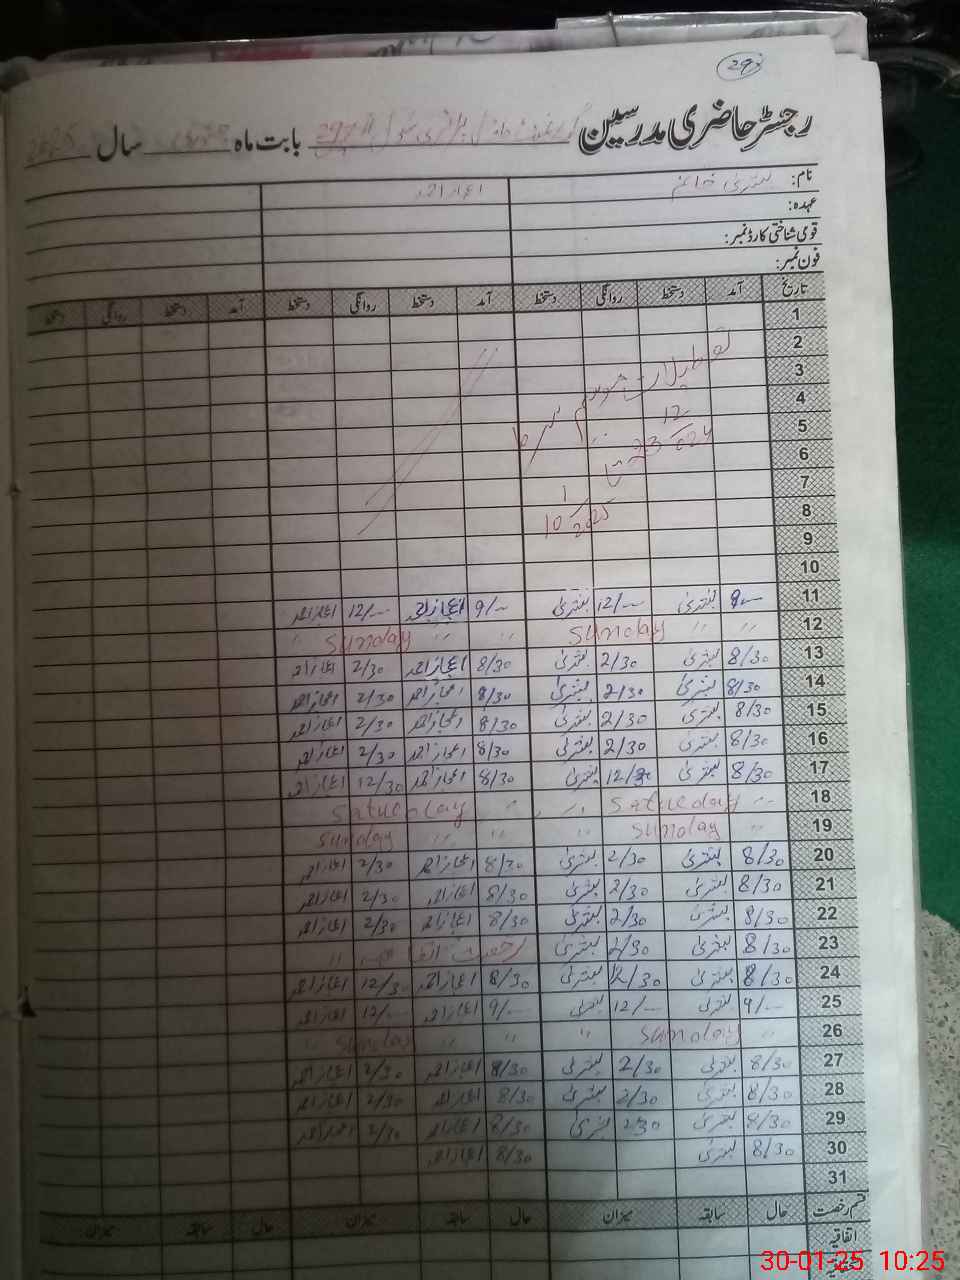 293
رجسٹر حاضری مدرسین بابت ماہ سال
نام: بشریٰ خانم اعجاز احمد
عہدہ:
قومی شناختی کارڈ نمبر:
فون نمبر:
تاریخ آمد دستخط روانگی دستخط آمد دستخط روانگی دستخط آمد دستخط روانگی دستخط
1
2
3
4
5
6
7
8
9
10
تعطیلات موسم سرما
23 12 2024 تا
10 1 2025
11 9/— بشریٰ 12/— بشریٰ 9/— اعجاز احمد 12/— اعجاز احمد
12 " " Sunday " " Sunday "
13 8/30 بشریٰ 2/30 بشریٰ 8/30 اعجاز احمد 2/30 اعجاز احمد
14 8/30 بشریٰ 2/30 بشریٰ 8/30 اعجاز احمد 2/30 اعجاز احمد
15 8/30 بشریٰ 2/30 بشریٰ 8/30 اعجاز احمد 2/30 اعجاز احمد
16 8/30 بشریٰ 2/30 بشریٰ 8/30 اعجاز احمد 2/30 اعجاز احمد
17 8/30 بشریٰ 12/30 بشریٰ 8/30 اعجاز احمد 12/30 اعجاز احمد
18 " Satueday " " Satueday
19 " Sunday " " " Sunday
20 8/30 بشریٰ 2/30 بشریٰ 8/30 اعجاز احمد 2/30 اعجاز احمد
21 8/30 بشریٰ 2/30 بشریٰ 8/30 اعجاز احمد 2/30 اعجاز احمد
22 8/30 بشریٰ 2/30 بشریٰ 8/30 اعجاز احمد 2/30 اعجاز احمد
23 8/30 بشریٰ 2/30 بشریٰ رخصت اتفاقیہ "
24 8/30 بشریٰ 12/30 بشریٰ 8/30 اعجاز احمد 12/30 اعجاز احمد
25 9/— بشریٰ 12/— بشریٰ 9/— اعجاز احمد 12/— اعجاز احمد
26 " Sunday " " " Sunday "
27 8/30 بشریٰ 2/30 بشریٰ 8/30 اعجاز احمد 2/30 اعجاز احمد
28 8/30 بشریٰ 2/30 بشریٰ 8/30 اعجاز احمد 2/30 اعجاز احمد
29 8/30 بشریٰ 2/30 بشریٰ 8/30 اعجاز احمد 2/30 اعجاز احمد
30 8/30 بشریٰ 8/30 اعجاز احمد
31
قسم رخصت حال سابقہ میزان حال سابقہ میزان حال سابقہ میزان
اتفاقیہ
30-01-25 10:25